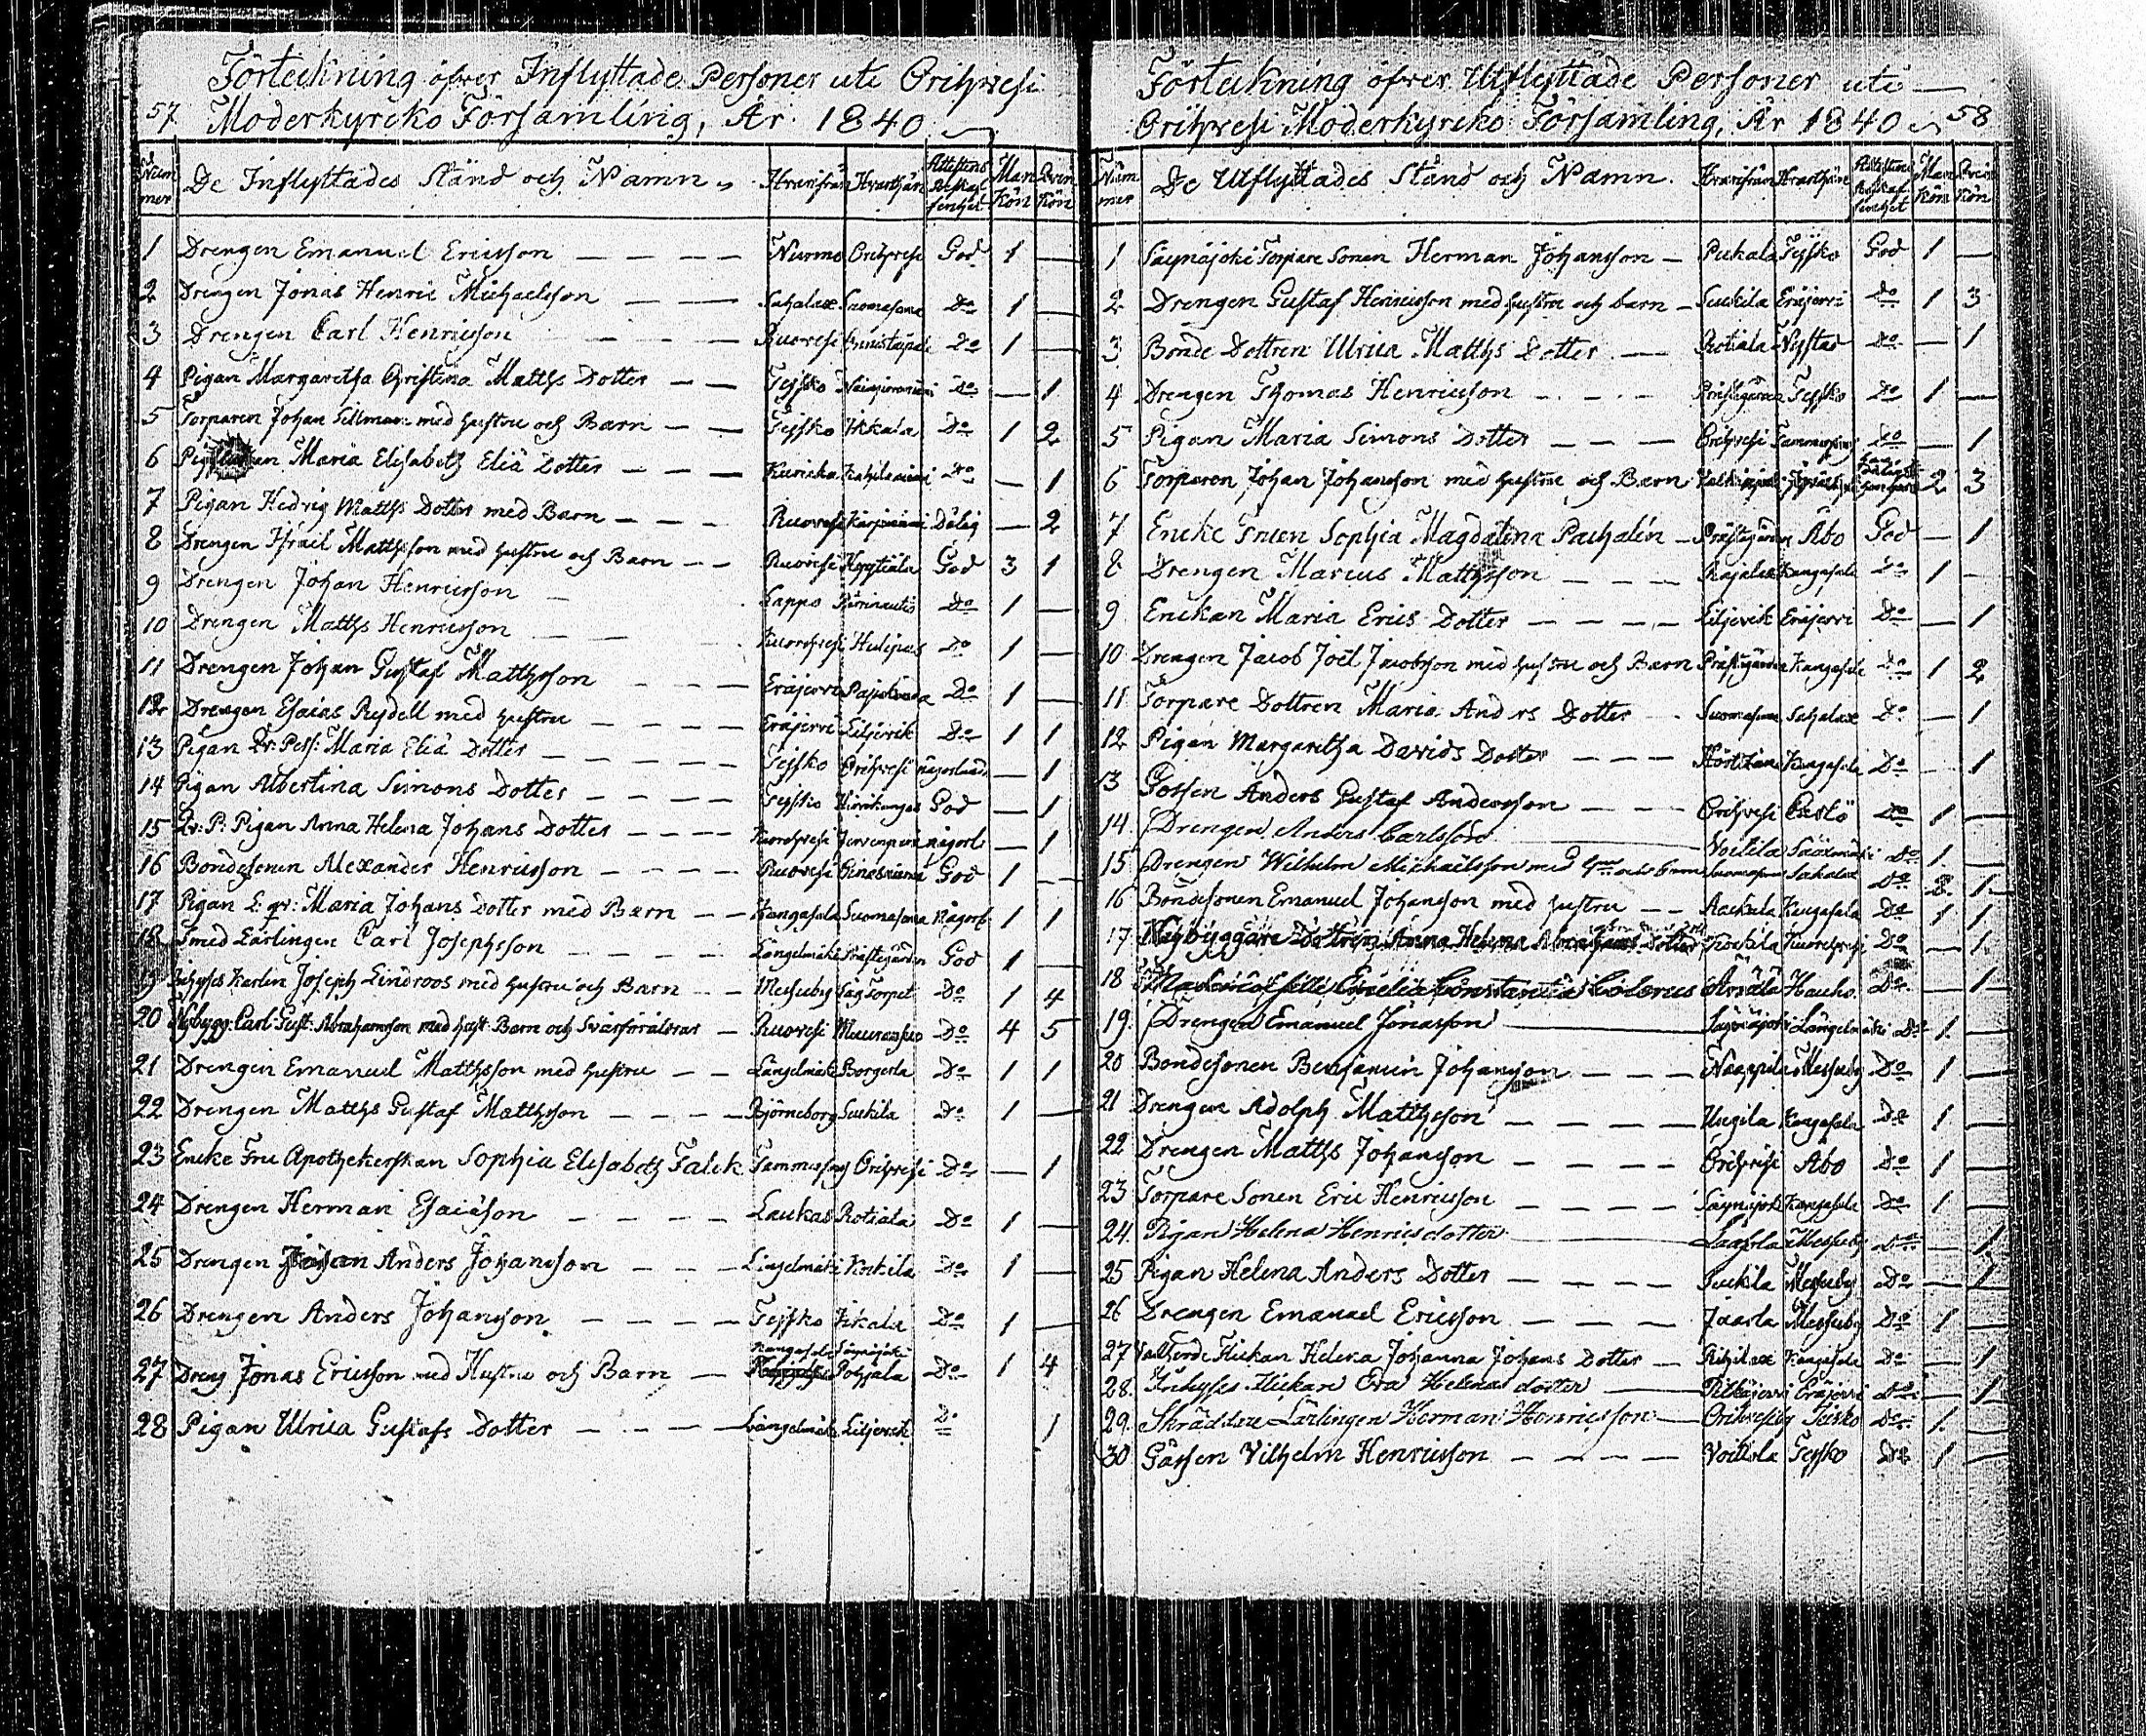 Förteckning öfver Inflyttade Personer uti Orihvesi
57. Moderkyrko Församling, År 1840
Num mer De Inflyttades Stånd och Namn Hvarifrån Hvarthän Attestens Beskaffenhet Man Kön Qvin Kön
1 Drengen Emanuel Ericsson Nurmo Orihvesi God 1 —
2 Drengen Jonas Henric Michaelsson Sahalax Suomasema Do 1 —
3 Drengen Carl Henricsson Ruovesi Onnistaipale Do 1 —
4 Pigan Margaretha Christina Matths Dotter Teisko Do — 1
5 Torparen Johan Sillman med hustru och Barn Teisko Vikkala Do 1 2
6 Pigan Maria Elisabeth Eliä Dotter Kuricka Do — 1
7 Pigan Hedvig Matths Dotter med Barn Ruovesi Karpinimi Dålig — 2
8 Drengen Israel Matthsson med hustru och Barn Ruovesi God 3 1
9 Drengen Johan Henricsson Lappo Do 1 —
10 Drengen Matths Henricsson Kuorehvesi Huhpas Do 1 —
11 Drengen Johan Gustaf Matthsson Eräjervi Do 1 —
12 Drengen Esaias Rydell med hustru Eräjervi Liljevik Do 1 1
13 Pigan Qv: Pers: Maria Eliä Dotter Teisko Orihvesi — 1
14 Pigan Albertina Simons Dotter Teisko Hirvikangas God — 1
15 Qv: P: Pigan Anna Helena Johans Dotter Kuorehvesi Jervenpää någorl — 1
16 Bondesonen Alexander Henricsson Ruovesi God 1 —
17 Pigan L: qv: Maria Johans Dotter med Barn Kangasala Suomasema Någorl 1 1
18 Smed Lärlingen Carl Josephsson Längelmäki Prästgården God 1 —
19 Inhyses Karlen Joseph Lindroos med hustru och Barn Messuby Såg Torpet Do 1 4
20 Nybygg: Carl Gust: Abrahamsson med hust: Barn och Svärföräldrar Ruovesi Muurassuo Do 4 5
21 Drengen Emanuel Matthsson med hustru Längelmäki Borgerla Do 1 1
22 Drengen Matths Gustaf Matthsson Björneborg Suckila Do 1 —
23 Encke Fru Apothekerskan Sophia Elisabeth Falck Tammerfors Orihvesi Do — 1
24 Drengen Herman Esaiäson Laukas Rotiala Do 1 —
25 Drengen Anders Johansson Längelmäki Kockila Do 1 —
26 Drengen Anders Johansson Teisko Vikala Do 1 —
Kangasala Säynäjoki
27 Dreng Jonas Ericsson med Hustru och Barn Pohjala Do 1 4
28 Pigan Ulrica Gustafs Dotter Längelmäki Liljevik Do 1
Förteckning öfver Utflyttade Personer uti
Orihvesi Moderkyrko Församling, År 1840 58
Num mer De Utflyttades Stånd och Namn Hvarifrån Hvarthän Attestens Beskaffenhet Man Kön Qvin Kön
1 Säynäjoki Torpare Sonen Herman Johansson Pukala Teisko God 1 —
2 Drengen Gustaf Henricsson med hustru och barn Suckila Eräjervi Do 1 3
3 Bonde Dottren Ulrica Matths Dotter Rotiala Nystad Do — 1
4 Drengen Thomas Henricsson Prästgården Teisko Do 1 —
5 Pigan Maria Simons Dotter Orihvesi Tammerfors Do — 1
6 Torparen Johan Johansson med hustru och Barn 2 3
7 Encke Fruen Sophia Magdalena Pachalén Prästgården Åbo God — 1
8 Drengen Marcus Matthsson Rajalax Kangasala Do 1 —
9 Enckan Maria Erics Dotter Liljevik Eräjervi Do — 1
10 Drengen Jacob Joël Jacobsson med hustru och Barn Prästgården Kangasala Do 1 2
11 Torpare Dottren Maria Anders Dotter Suomasema Sahalax Do — 1
12 Pigan Margaretha Davids Dotter Kangasala Do — 1
13 Gossen Anders Gustaf Andersson Orihvesi Do 1 —
14 Drengen Anders Carlsson Voitila Sääxmäki Do 1 —
15 Drengen Wilhelm Michaelsson med Suomasema Sahalax Do 2 1
16 Bondesonen Emanuel Johansson med hustru Aackula Kangasala Do 1 1
17 Nybyggare Dottren Anna Helena Abrahams Dotter Kockila Kuorehvesi Do — 1
18 Emelia Constantia Hauho Do — 1
19 Drengen Emanuel Jonasson Säynäjoki Längelmäki Do 1 —
20 Bondesonen Benjamin Johansson Naappila Messuby Do 1 —
21 Drengen Adolph Matthsson Uiherla Kangasala Do 1 —
22 Drengen Matths Johansson Orihvesi Åbo Do 1 —
23 Torpare Sonen Eric Henricsson Säynäjoki Kangasala Do 1 —
24 Pigan Helena Henricsdotter Laasola Messuby Do — 1
25 Pigan Helena Anders Dotter Suckila Messuby Do — 1
26 Drengen Emanuel Ericsson Jaarla Messuby Do 1 —
27 Flickan Helena Johanna Johans Dotter Kangasala Do — 1
28 Inhyses Flickan Eva Helena dotter Pitkäjervi Eräjervi Do — 1
29 Skräddare Lärlingen Herman Henricsson Orihvesiby Teisko Do 1 —
30 Gåssen Vilhelm Henricsson Voitila Teisko Do 1 —